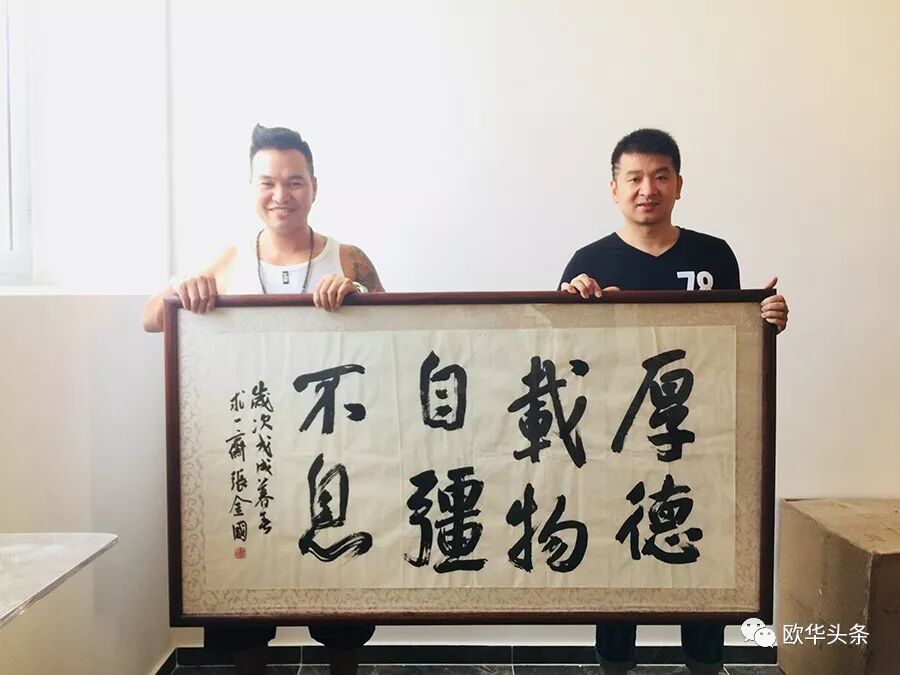 厚德
載物
自彊
不息
歲次戊戌暮春
求齋 張金國
78
欧华头条